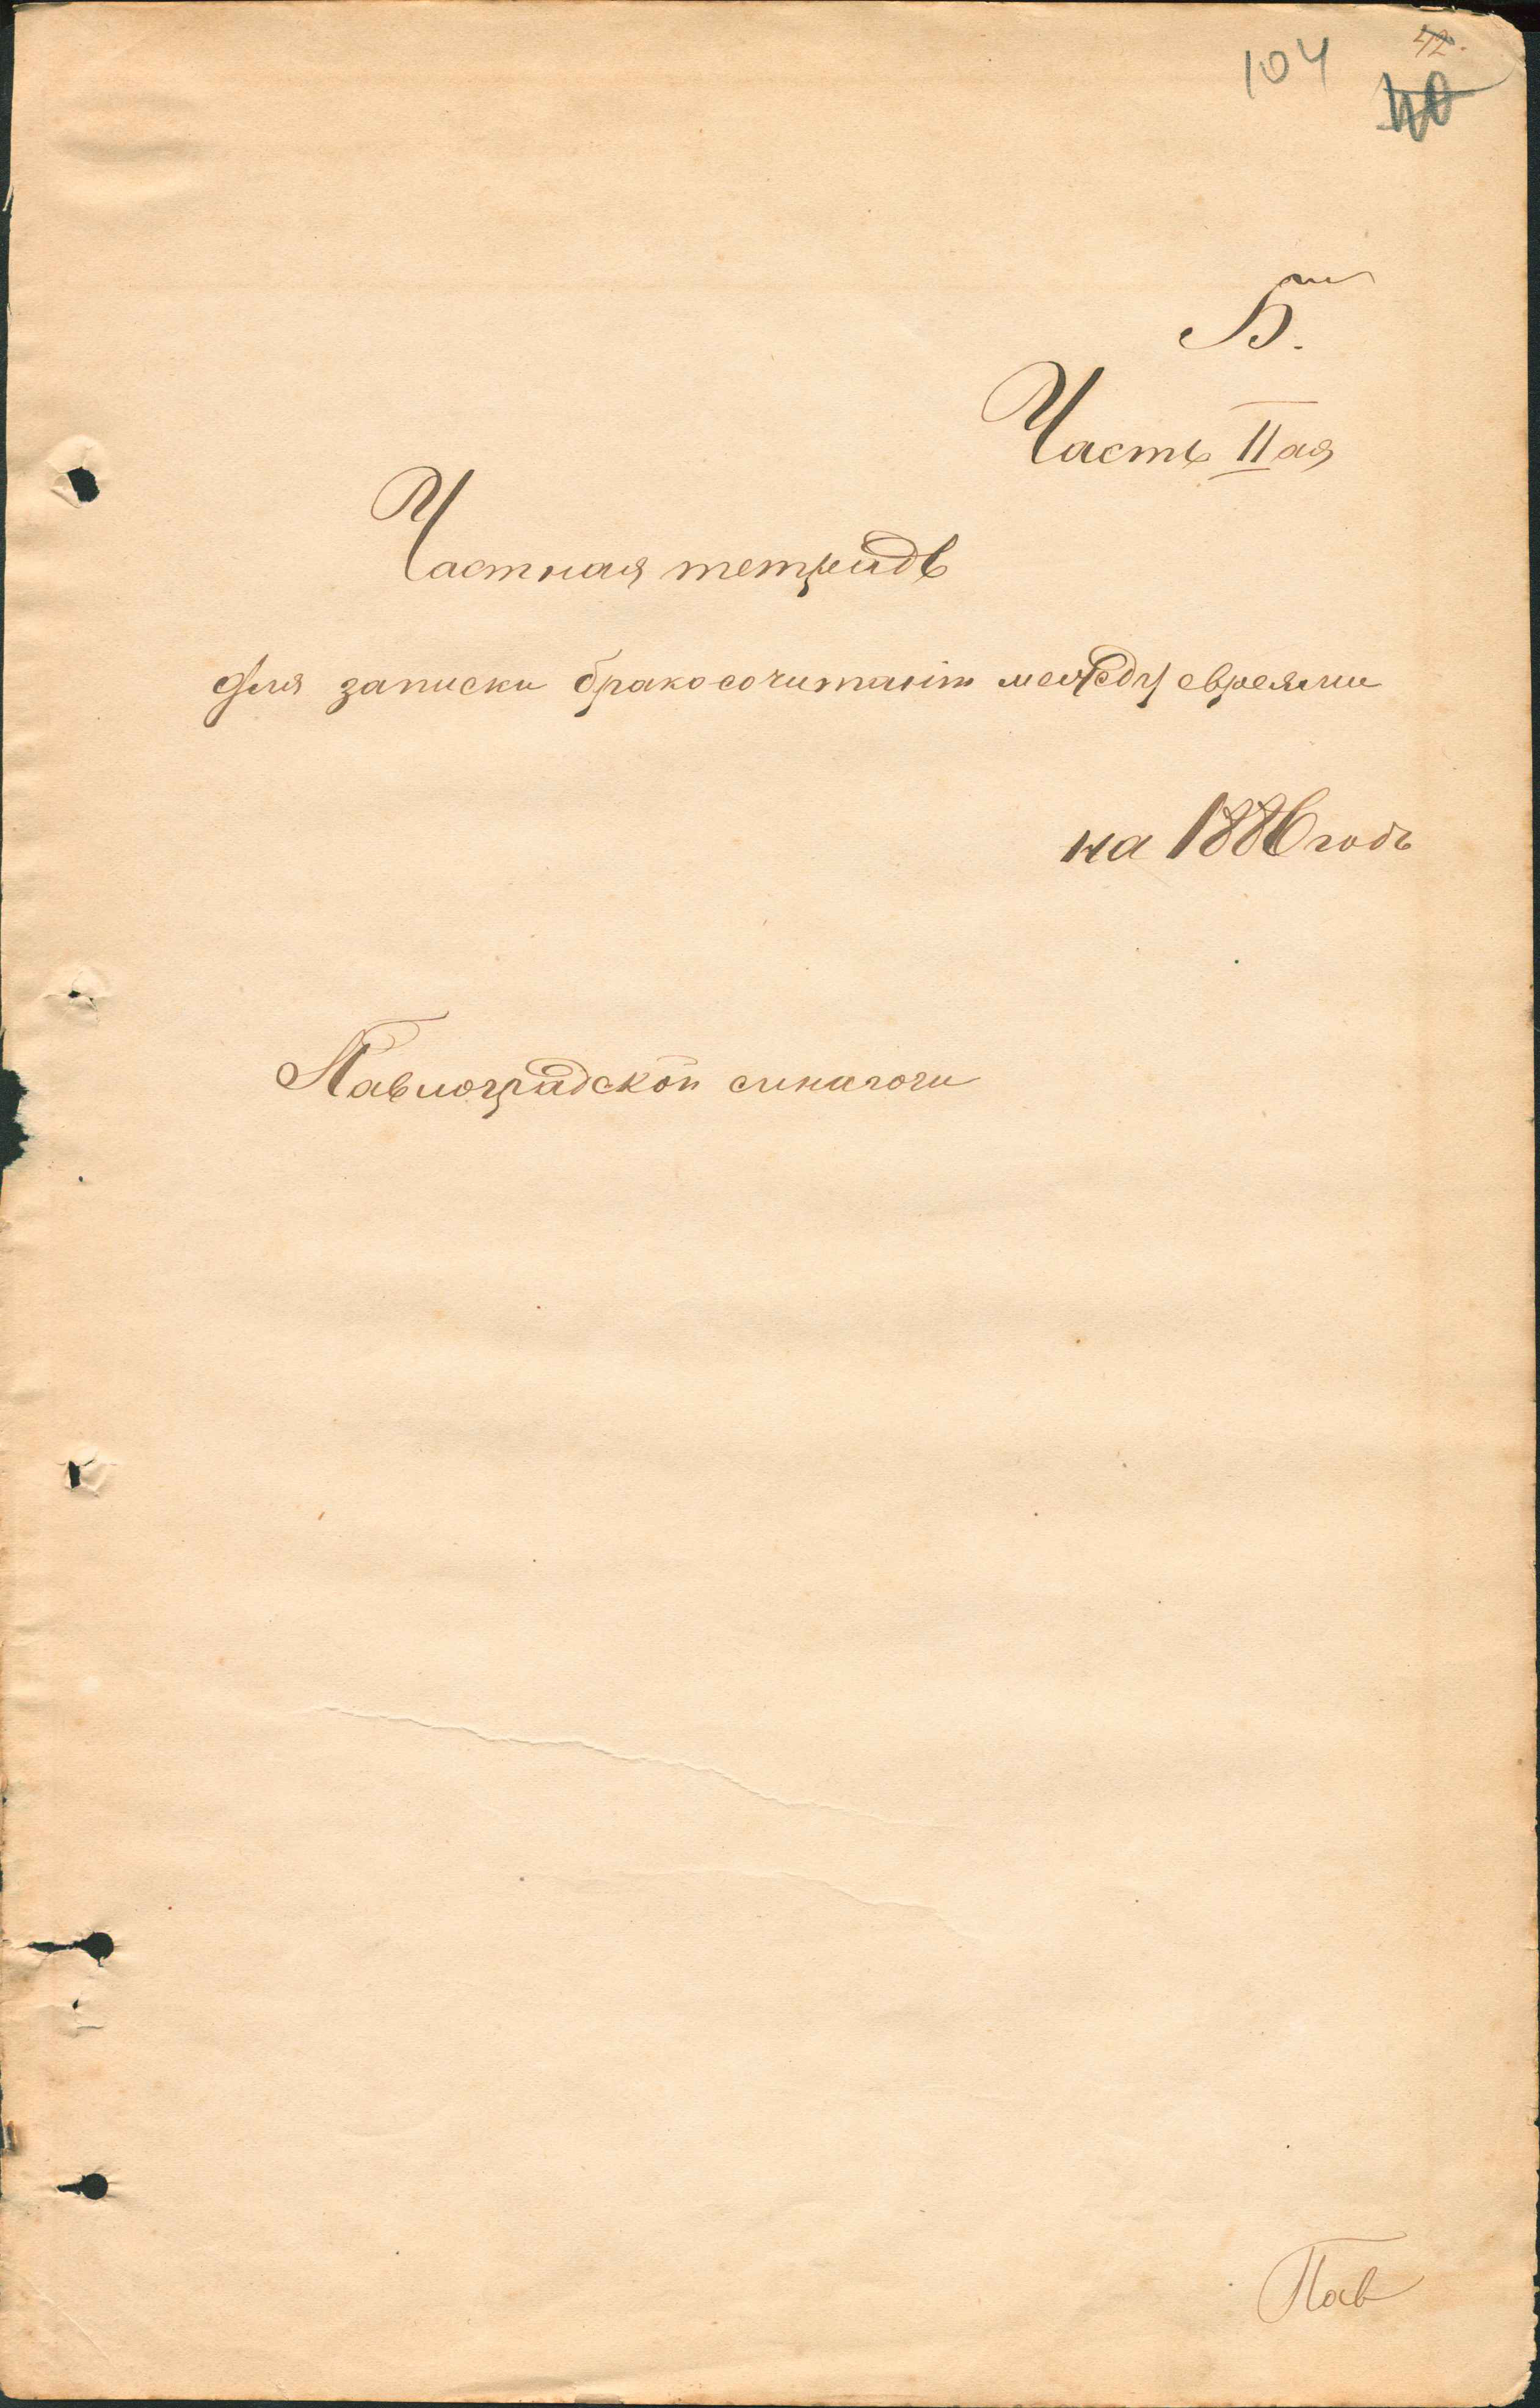 104 42.
40
Б.
Часть II ая
Частная тетрадь
для записки бракосочитаній между евреями
на 1886 годъ
Павлоградской синагоги
Пав